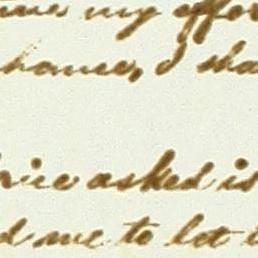 my effor
I sha
rice asked is
d me to let